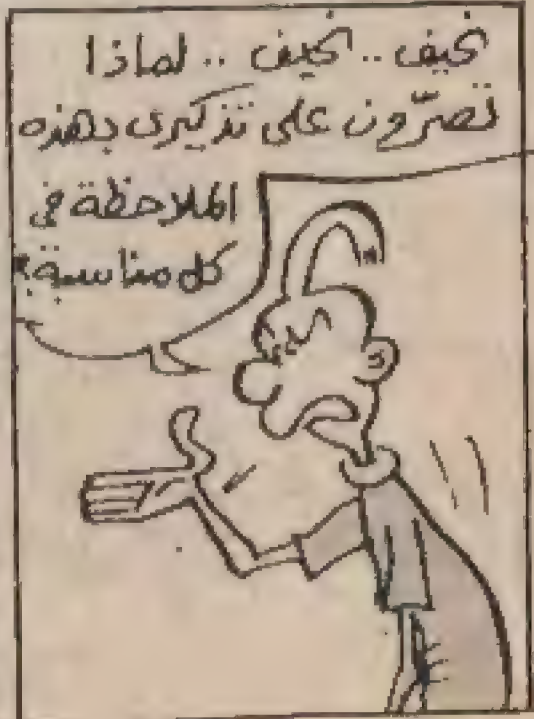 نحيف .. نحيف .. لماذا
تصرّون على تذكيرى بهذه
الملاحظة في
كل مناسبة؟